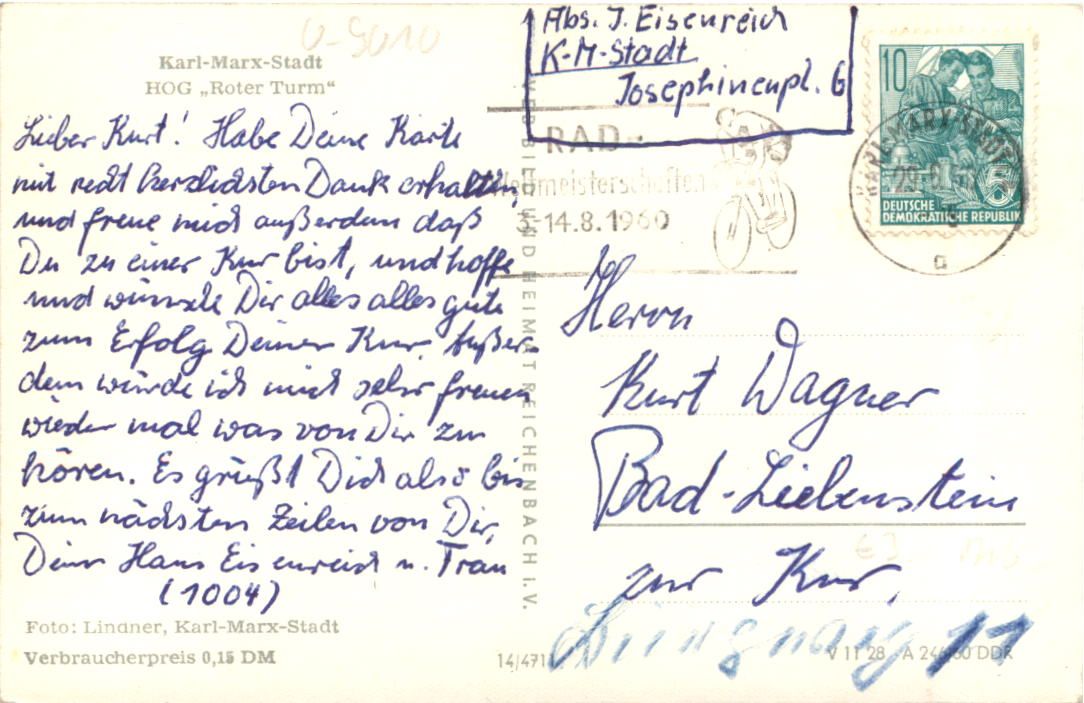 U-9010
Karl-Marx-Stadt
HOG „Roter Turm“
Lieber Kurt! Habe Deine Karte
mit recht herzlichsten Dank erhalten,
und freue mich außerdem daß
Du zu einer Kur bist, und hoffe
und wünsche Dir alles alles gute
zum Erfolg Deiner Kur. Außer-
dem würde ich mich sehr freuen
wieder mal was von Dir zu
hören. Es grüßt Dich also bis
zum nächsten Zeilen von Dir,
Dein Hans Eisenreich u. Frau
(1004)
Foto: Lindner, Karl-Marx-Stadt
Verbraucherpreis 0,15 DM
VERBILD UND HEIMAT REICHENBACH I. V.
14/471
V 11 28 A 246/60 DDR
Abs. J. Eisenreich
K-M-Stadt
Josephinenpl. 6
RAD-
Weltmeisterschaften
3.-14.8.1960
10
DEUTSCHE
DEMOKRATISCHE REPUBLIK
5
KARL-MARX-STADT
a
Herrn
Kurt Wagner
Bad-Liebenstein
zur Kur,
11